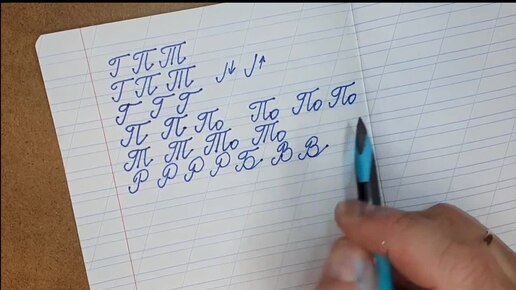 Г П Т
Г П Т
Г Г Г
П П По По По По
Т Т То То
Р Р Р Р Б В В